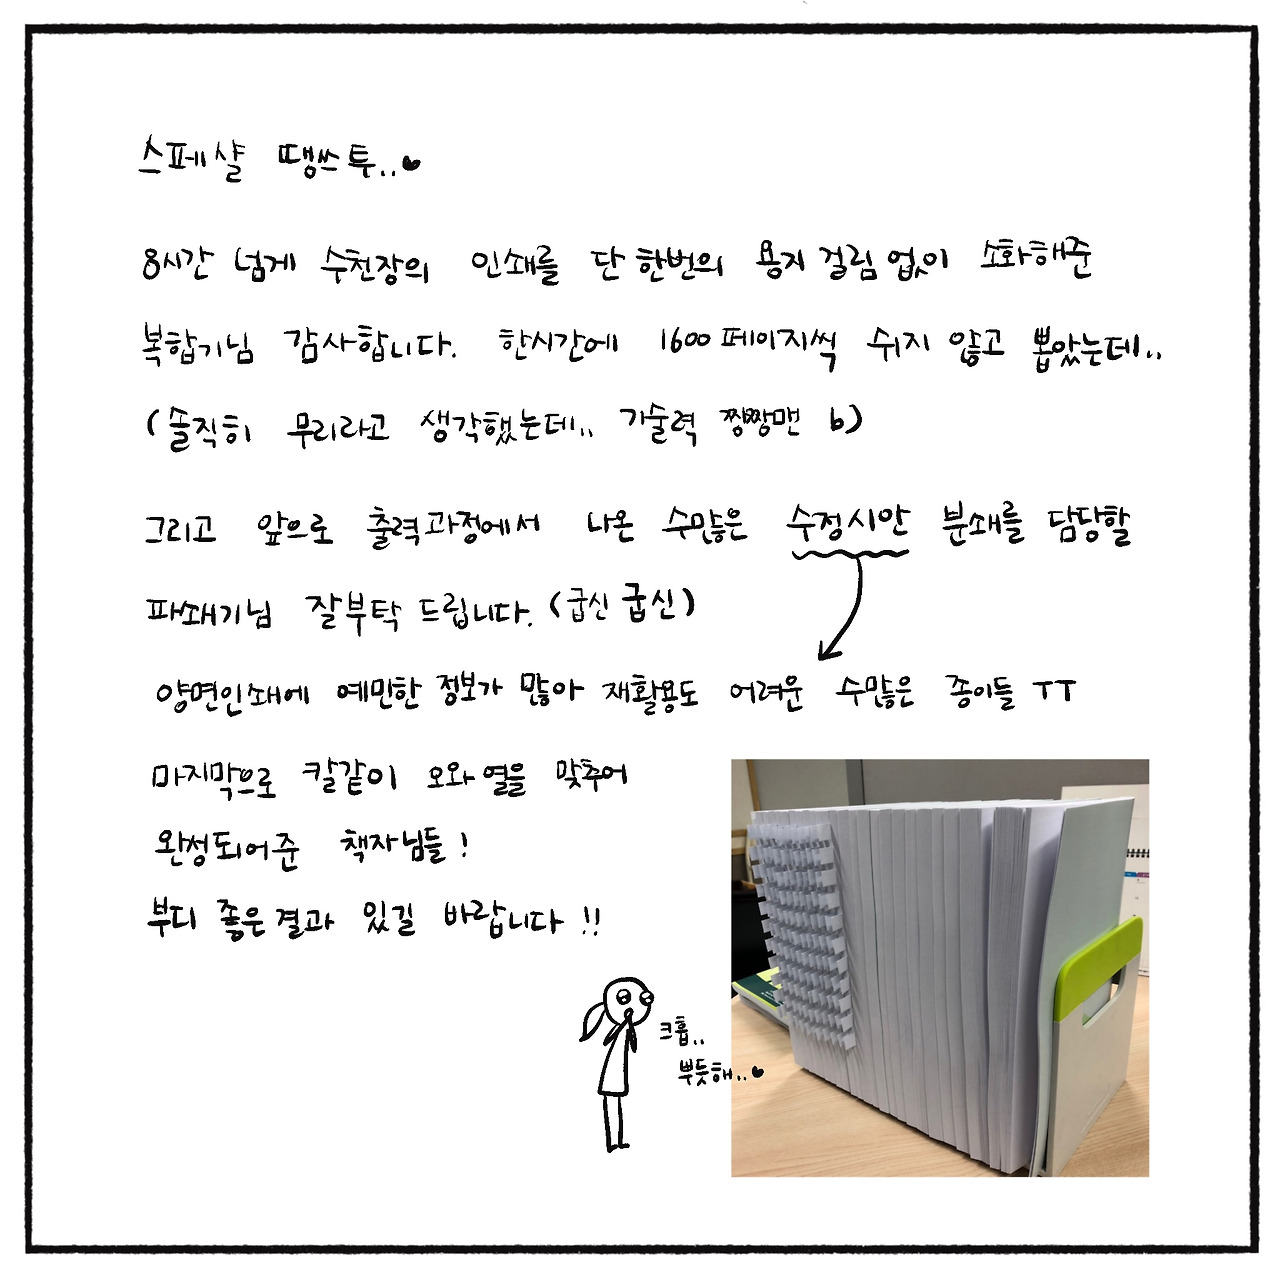 스페샬 땡쓰투..♥
8시간 넘게 수천장의 인쇄를 단 한번의 용지 걸림 없이 소화해준
복합기님 감사합니다. 한시간에 1600페이지씩 쉬지 않고 뽑았는데..
(솔직히 무리라고 생각했는데.. 기술력 짱짱맨 b)
그리고 앞으로 출력과정에서 나온 수많은 수정시안 분쇄를 담당할
파쇄기님 잘부탁 드립니다. (굽신 굽신)
양면인쇄에 예민한 정보가 많아 재활용도 어려운 수많은 종이들 ㅜㅜ
마지막으로 칼같이 오와 열을 맞추어
완성되어준 책자님들!
부디 좋은결과 있길 바랍니다!!
크흡..
뿌듯해..♥